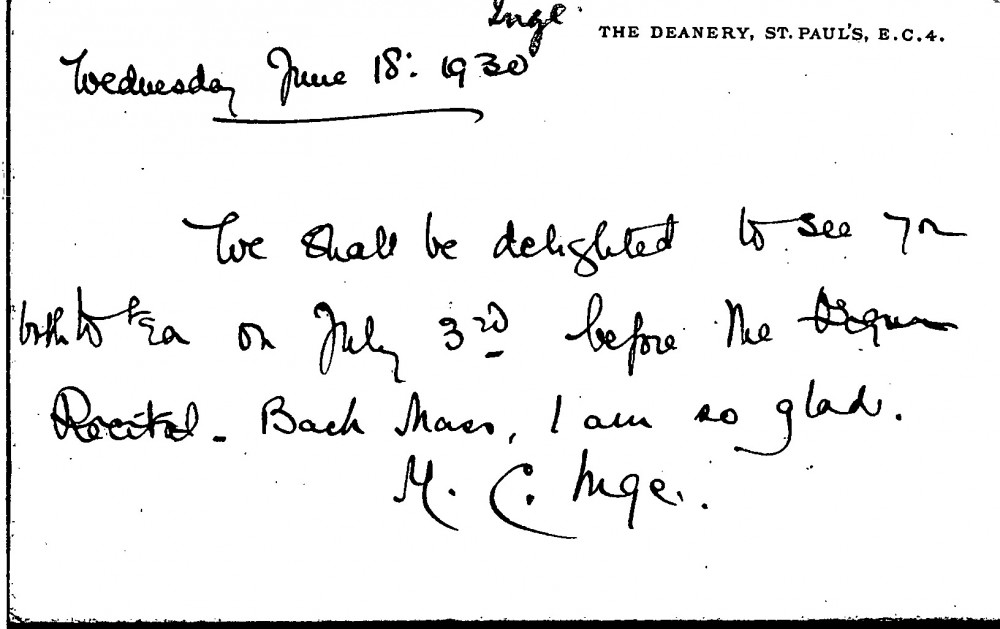 Inge.
THE DEANERY, ST. PAUL'S, E.C.4.
Wednesday June 18: 1930
We shall be delighted to see yr
both to tea on July 3rd before the Organ
Recital - Bach Mass, I am so glad.
M. C. Inge.